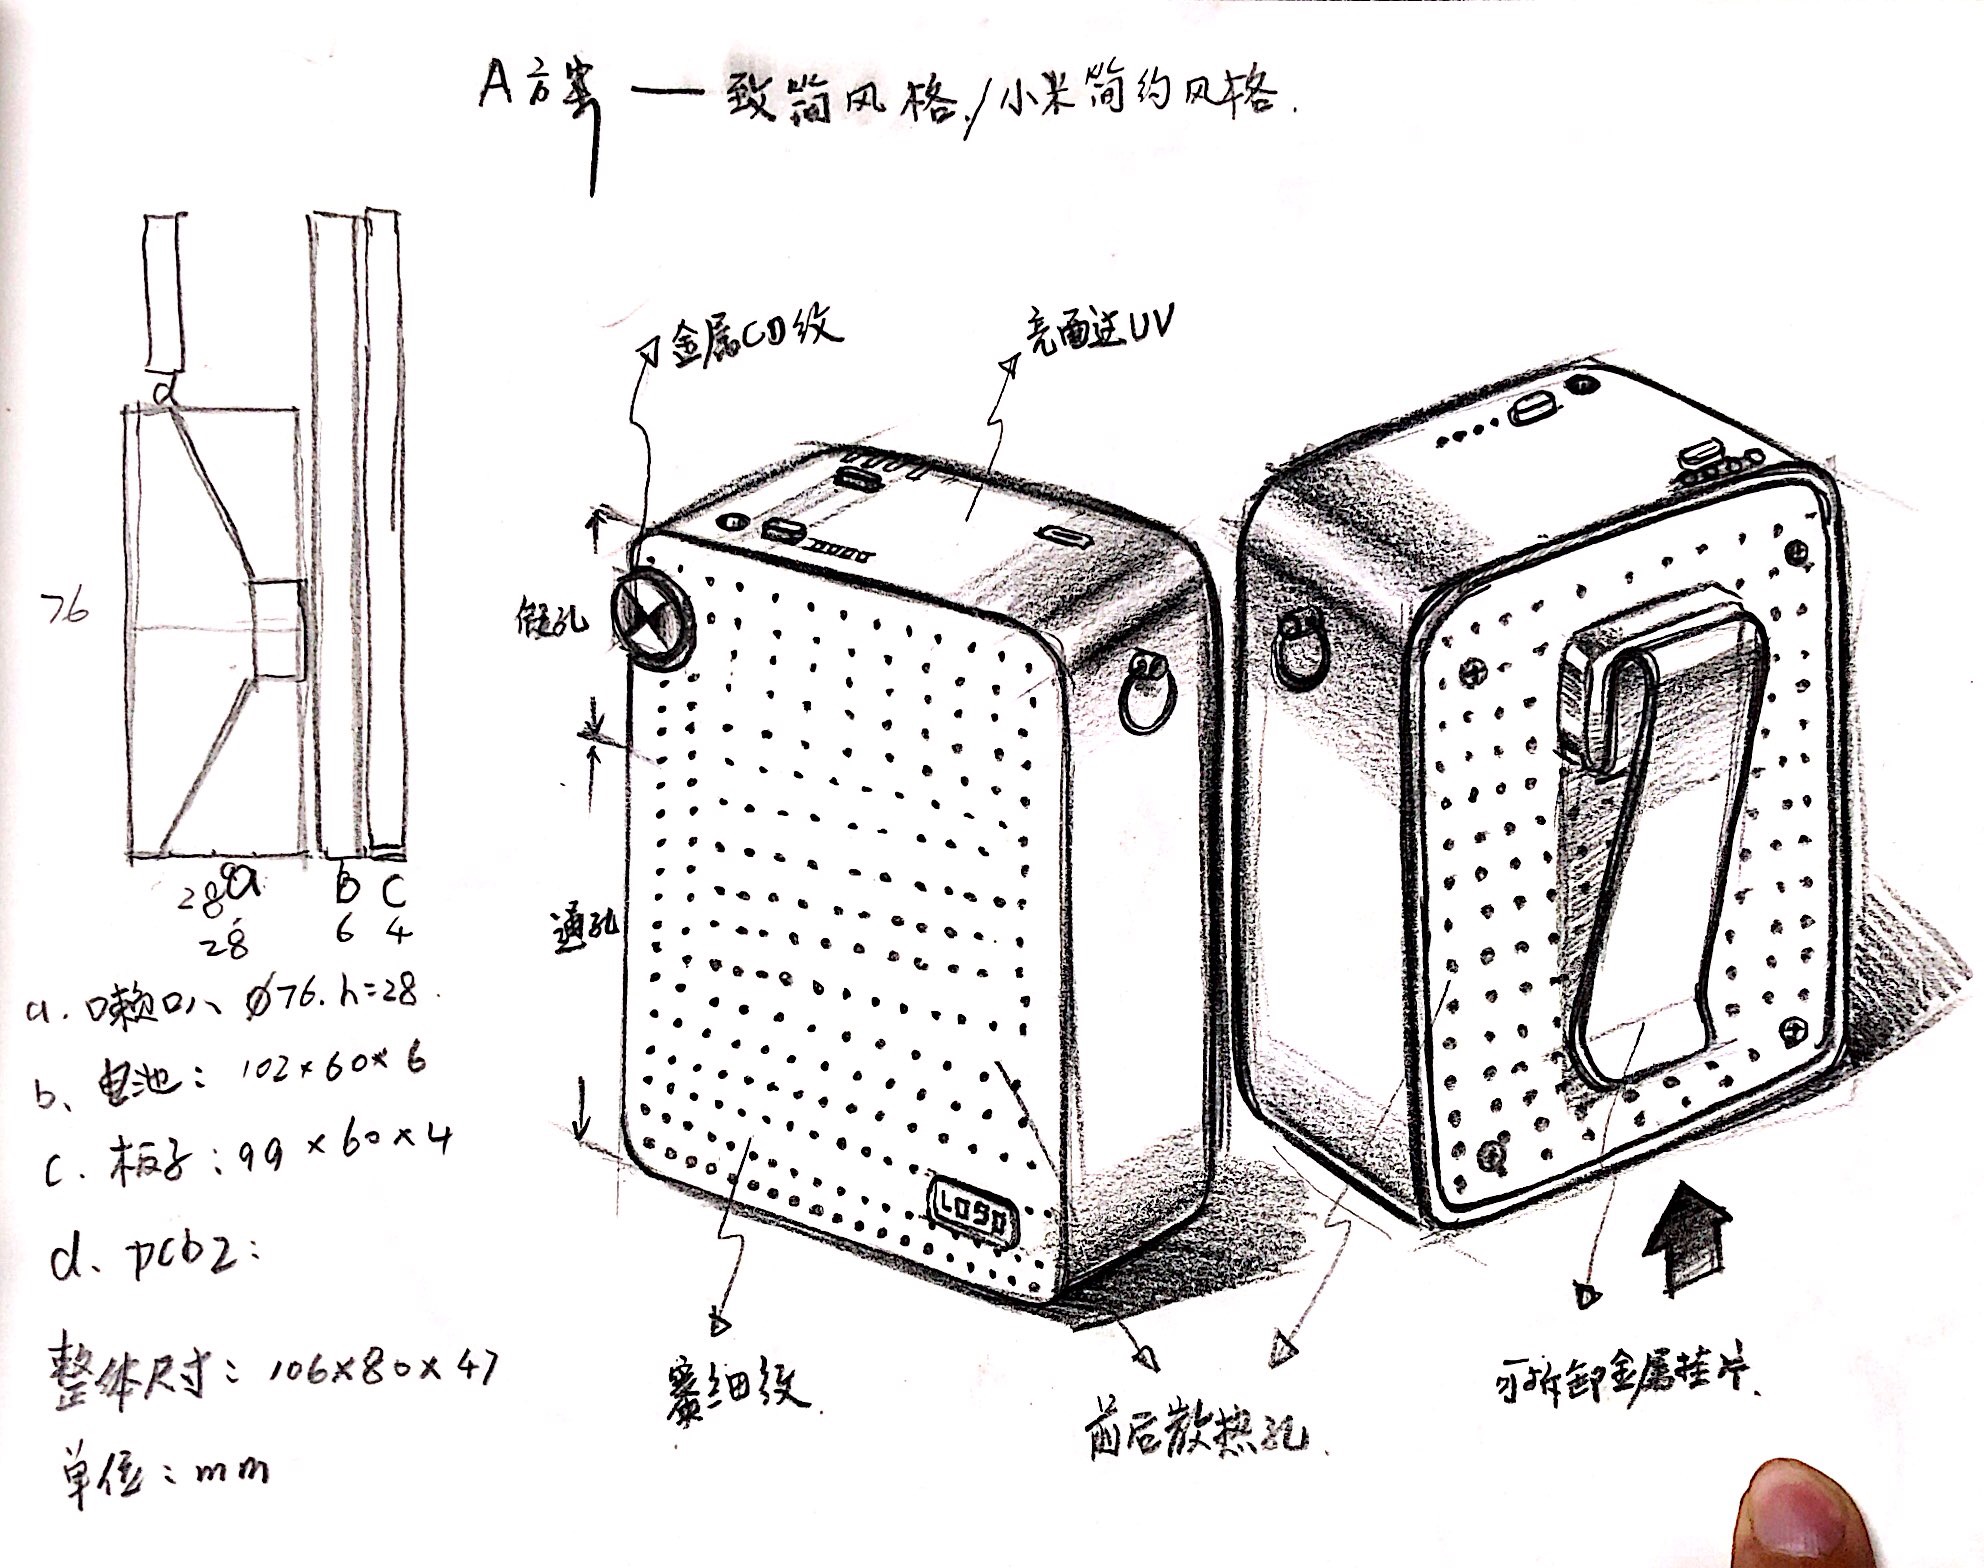 A方案 — 致简风格/小米简约风格.
金属CD纹
亮面过UV
d
假孔
76
通孔
28 a B C
28 6 4
a. 喇叭 Ø76. h=28.
b、电池: 102×60×6
c. 板子: 99×60×4
d. pcb2:
整体尺寸: 106×80×47
单位: mm
LOGO
蜜细纹.
前后散热孔.
可拆卸金属挂片.